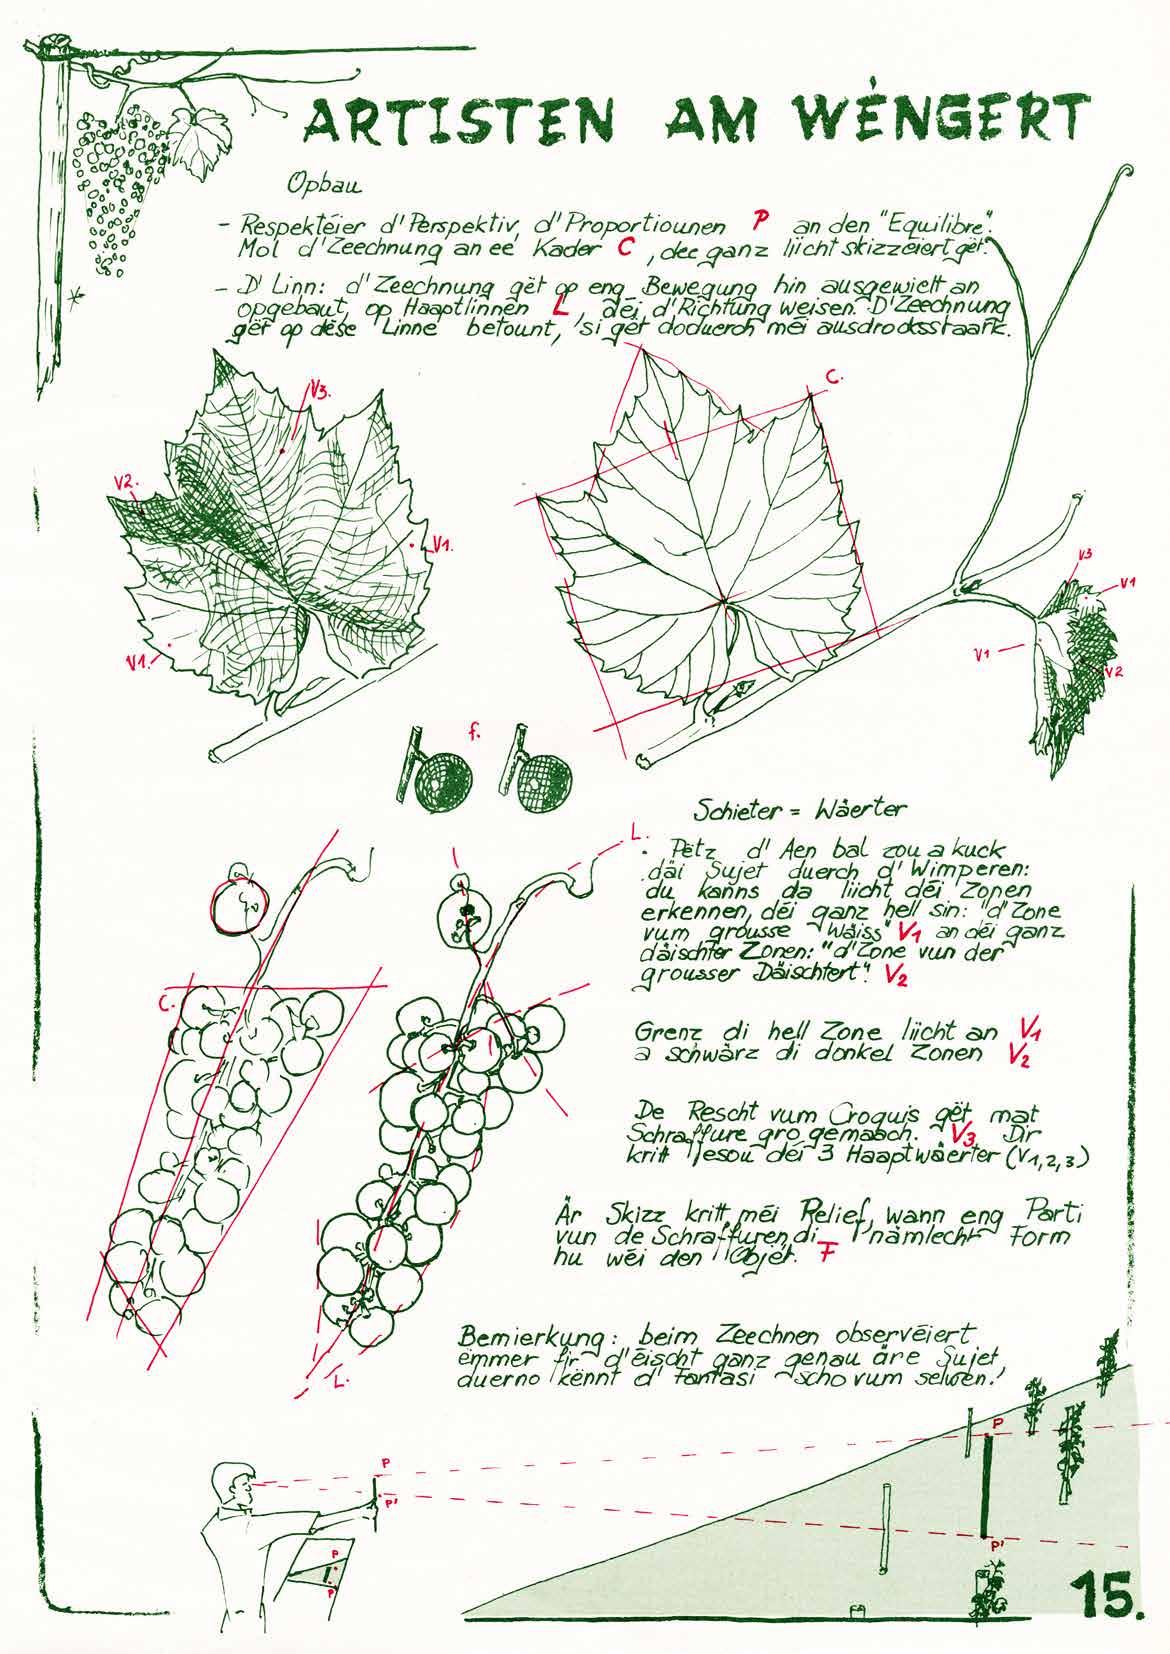 ARTISTEN AM WÉNGERT
Opbau
- Respektéier d'Perspektiv, d'Proportiounen P an den "Equilibre".
Mol d'Zeechnung an ee Kader C, dee ganz liicht skizzéiert gët.
- D'Linn: d'Zeechnung gët op eng Bewegung hin ausgewielt an
opgebaut, op Haaptlinnen L, déi d'Richtung weisen. D'Zeechnung
gët op dëse Linne betount, si gët doduerch méi ausdrocksstaark.
V3.
C.
V2.
V1.
V3
V1
V1
V2
V1.
f.
Schieter = Wäerter
. Pëtz d'Aen bal zou a kuck
däi Sujet duerch d'Wimperen:
du kanns da liicht déi Zonen
erkennen, déi ganz hell sin: "d'Zone
vum grousse Wäiss" V1 an déi ganz
däischter Zonen: "d'Zone vun der
grousser Däischtert". V2
L.
C.
Grenz di hell Zone liicht an V1
a schwärz di donkel Zonen V2
De Rescht vum Croquis gët mat
Schraffure gro gemaach. V3 Dir
kritt esou déi 3 Haaptwäerter (V1,2,3)
Är Skizz kritt méi Relief, wann eng Parti
vun de Schraffuren di nämlecht Form
hu wéi den Objet. F
Bemierkung: beim Zeechnen observéiert
ëmmer fir d'éischt ganz genau äre Sujet,
duerno kënnt d'Fantasi scho vum selwen!
L.
P
P
P'
P'
P
P
15.